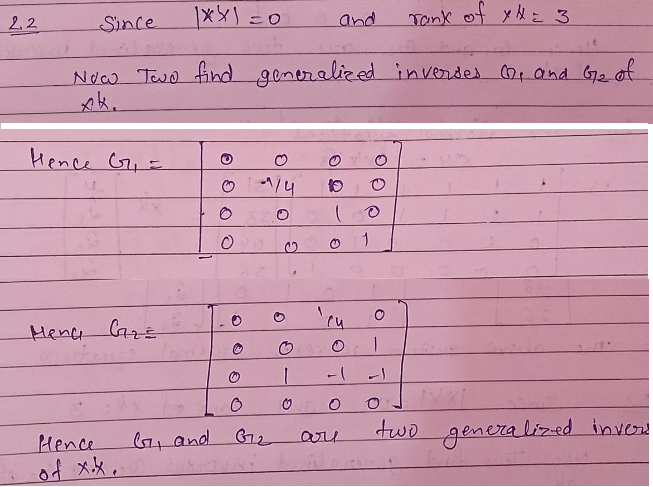 2.2 Since |X'X| = 0 and rank of X'X = 3
Now Two find generalized inverses G1 and G2 of
X'X.
Hence G1 =
0 0 0 0
0 1/4 0 0
0 0 1 0
0 0 0 1
Hence G2 =
0 0 1/4 0
0 0 0 1
0 1 -1 -1
0 0 0 0
Hence G1 and G2 are two generalized invers
of X'X.